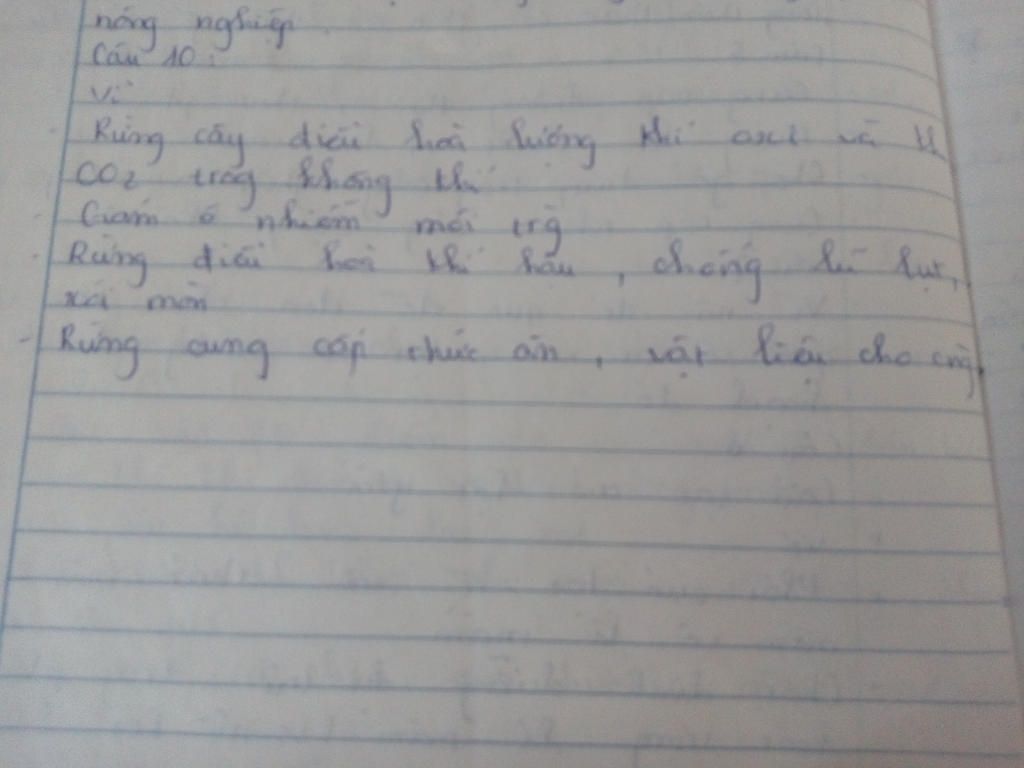 nông nghiệp.
Câu 10:
Vì
- Rừng cây điều hoà lượng khí oxi và
CO2 trog không khí
- Giảm ô nhiễm môi trg
- Rừng điều hoà khí hậu, chống lũ lụt,
xói mòn
- Rừng cung cấp thức ăn, vật liệu cho